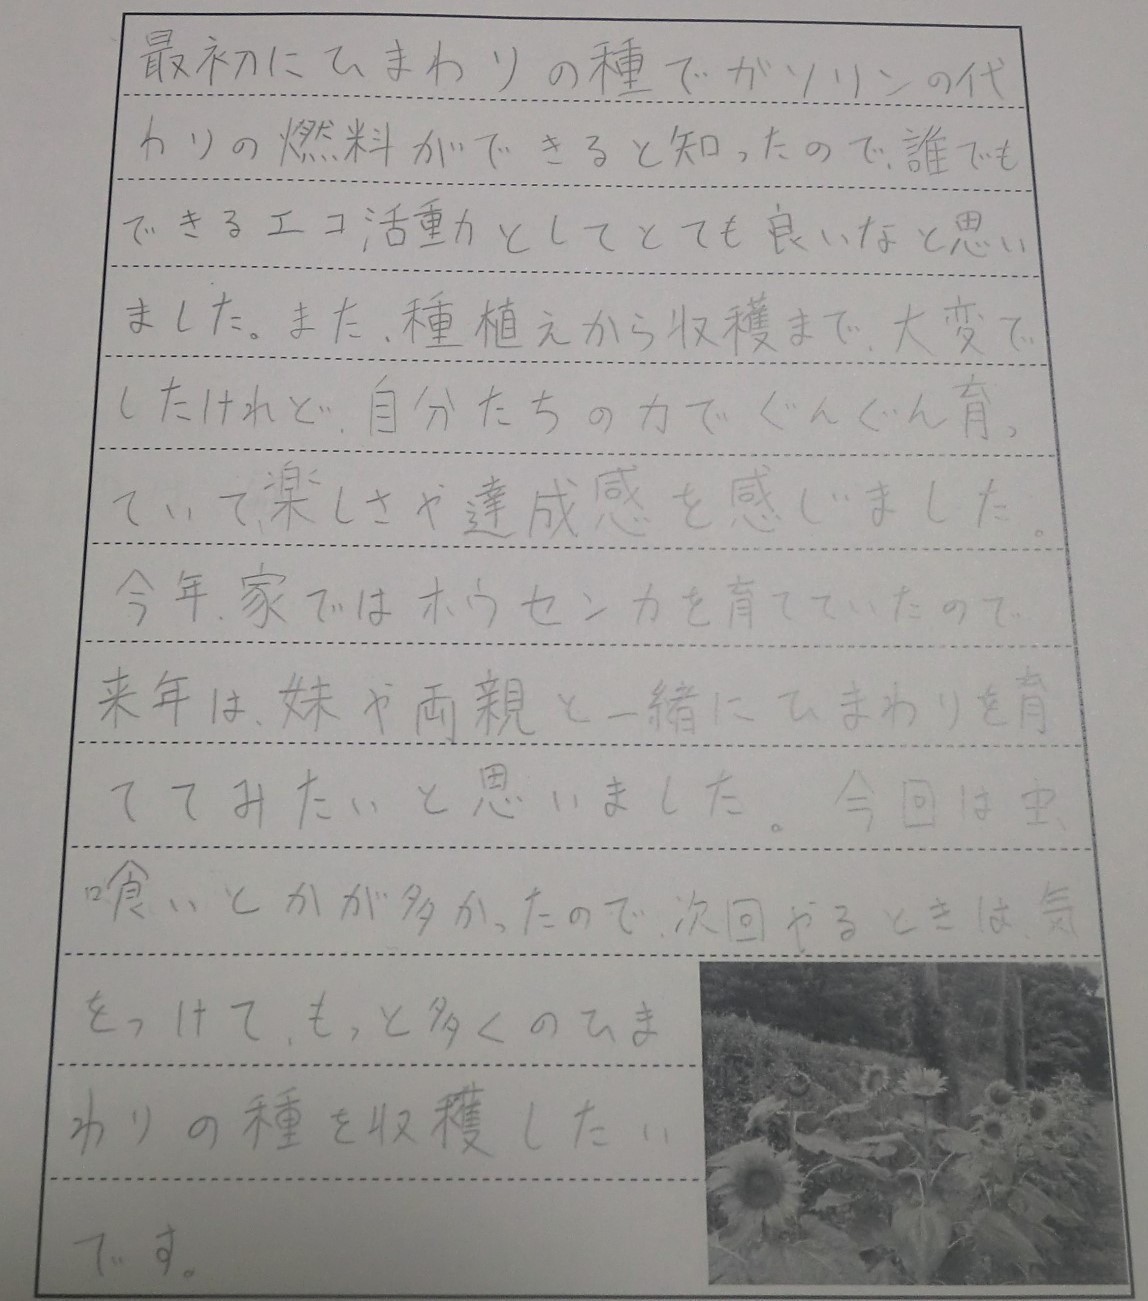 最初にひまわりの種でガソリンの代
わりの燃料ができると知ったので、誰でも
できるエコ活動力としてとても良いなと思い
ました。また、種植えから収穫まで、大変で
したけれど、自分たちの力でぐんぐん育っ
ていて、楽しさや達成感を感じました。
今年、家ではホウセンカを育てていたので
来年は、妹や両親と一緒にひまわりを育
ててみたいと思いました。今回は虫
喰いとかが多かったので、次回やるときは、気
をつけて、もっと多くのひま
わりの種を収穫したい
です。